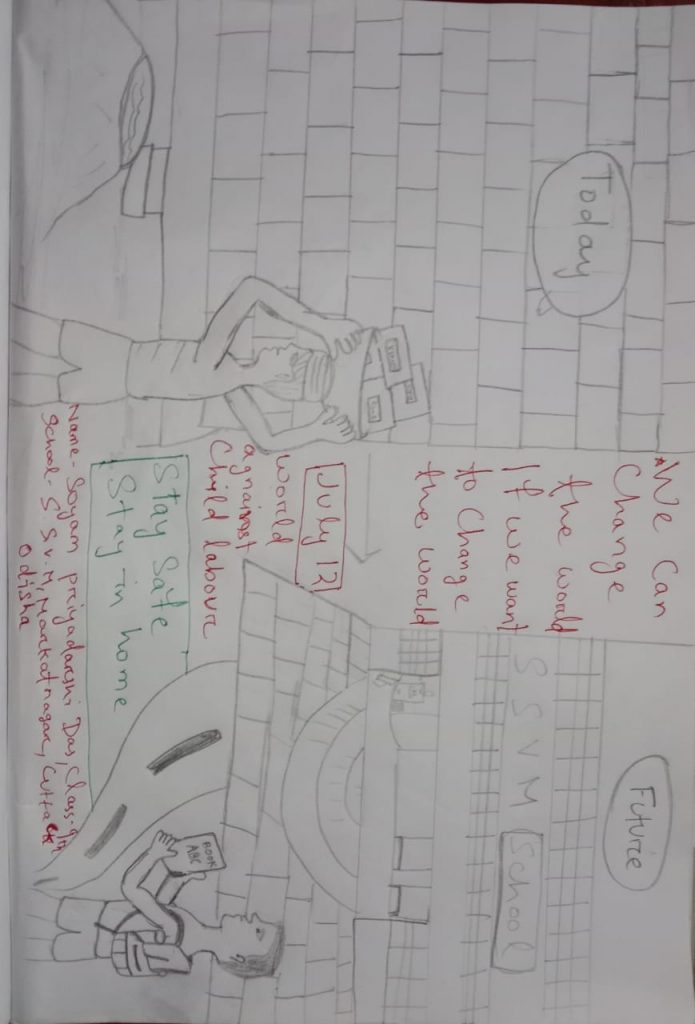 Today
*We Can
Change
the world
If we want
to Change
the world
July 12
World
agnainst
Child labour
Stay Safe
Stay-in home
Future
S S V M School
BOOK
ABC
Name- Soyam priyadarshi Das, Class-9th
School- S S V.M, Markatnagar, Cuttack
Odisha